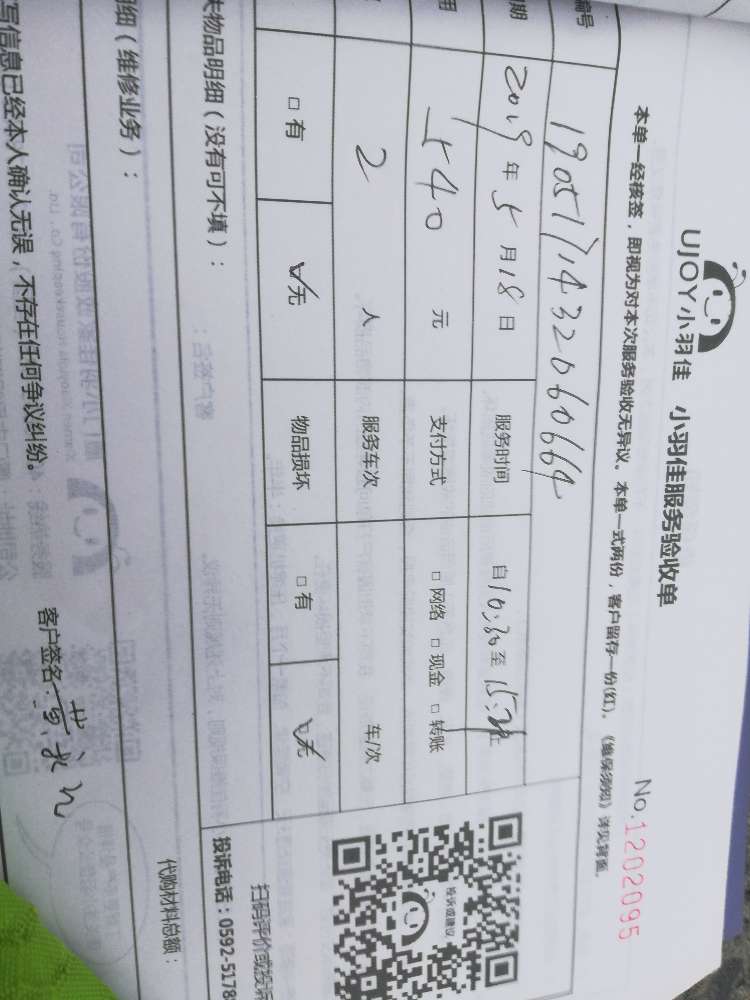 UJOY小羽佳 小羽佳服务验收单
No.1202095
本单一经核签，即视为对本次服务验收无异议。本单一式两份，客户留存一份(红)。《维保须知》详见背面。
编号 190517143206066
期 2019年5月18日 服务时间 自10:30至15:30止
用 540 元 支付方式 □网络 □现金 □转账
2 人 服务车次 车/次
□有 √无 物品损坏 □有 √无
失物品明细（没有可不填）：
投诉或建议
扫码评价或投诉
投诉电话：0592-5178
细（维修业务）：
代购材料总额：
写信息已经本人确认无误，不存在任何争议纠纷。
客户签名：